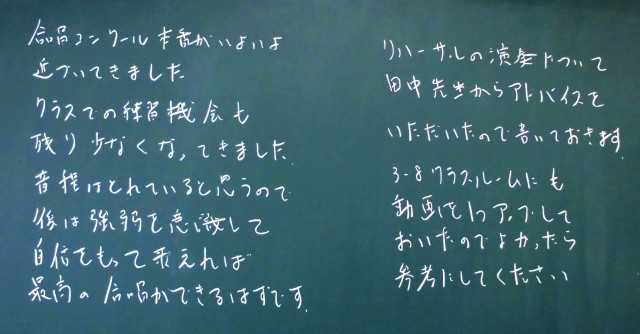 合唱コンクール本番がいよいよ
近づいてきました
クラスでの練習機会も
残り少なくなってきました
音程はとれていると思うので
後は強弱を意識して
自信をもって歌えれば
最高の合唱ができるはずです。
リハーサルの演奏について
田中先生からアドバイスを
いただいたので書いておきます。
3-8クラスルームにも
動画を1つアップして
おいたのでよかったら
参考にしてください